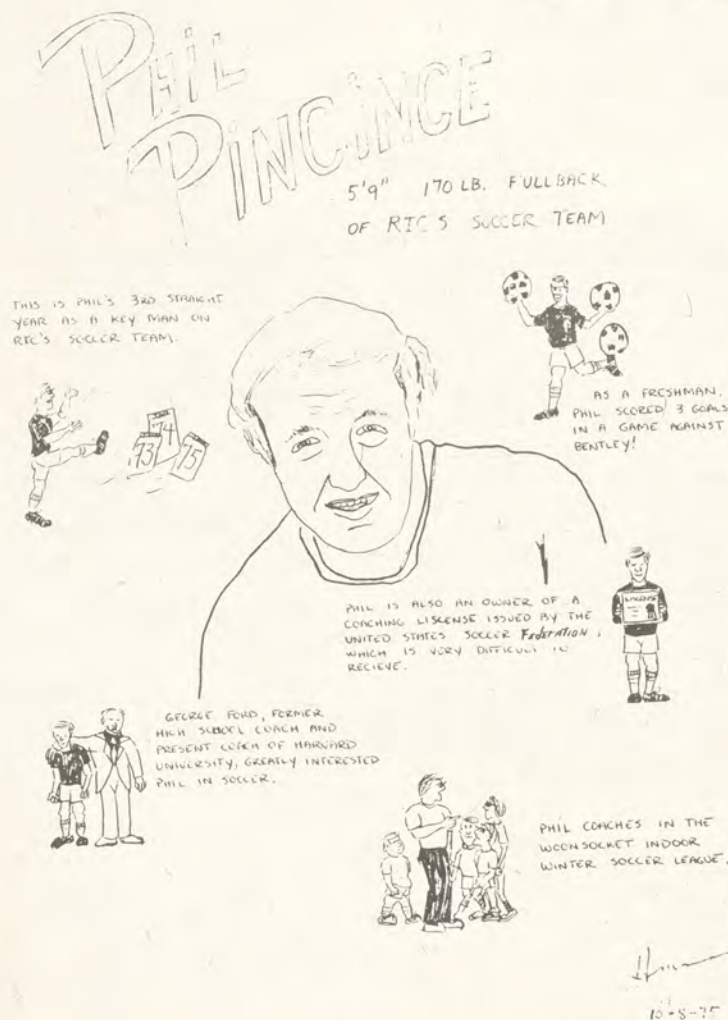 PHIL
PINCINCE
5'9" 170 LB. FULLBACK
OF RIC'S SOCCER TEAM
THIS IS PHIL'S 3RD STRAIGHT
YEAR AS A KEY MAN ON
RIC'S SOCCER TEAM.
73
74
75
AS A FRESHMAN,
PHIL SCORED 3 GOALS
IN A GAME AGAINST
BENTLEY!
PHIL IS ALSO AN OWNER OF A
COACHING LISCENSE ISSUED BY THE
UNITED STATES SOCCER FEDERATION,
WHICH IS VERY DIFFICULT TO
RECIEVE.
LISCENSE
GEORGE FORD, FORMER
HIGH SCHOOL COACH AND
PRESENT COACH OF HARVARD
UNIVERSITY, GREATLY INTERESTED
PHIL IN SOCCER.
PHIL COACHES IN THE
WOONSOCKET INDOOR
WINTER SOCCER LEAGUE.
10-8-75